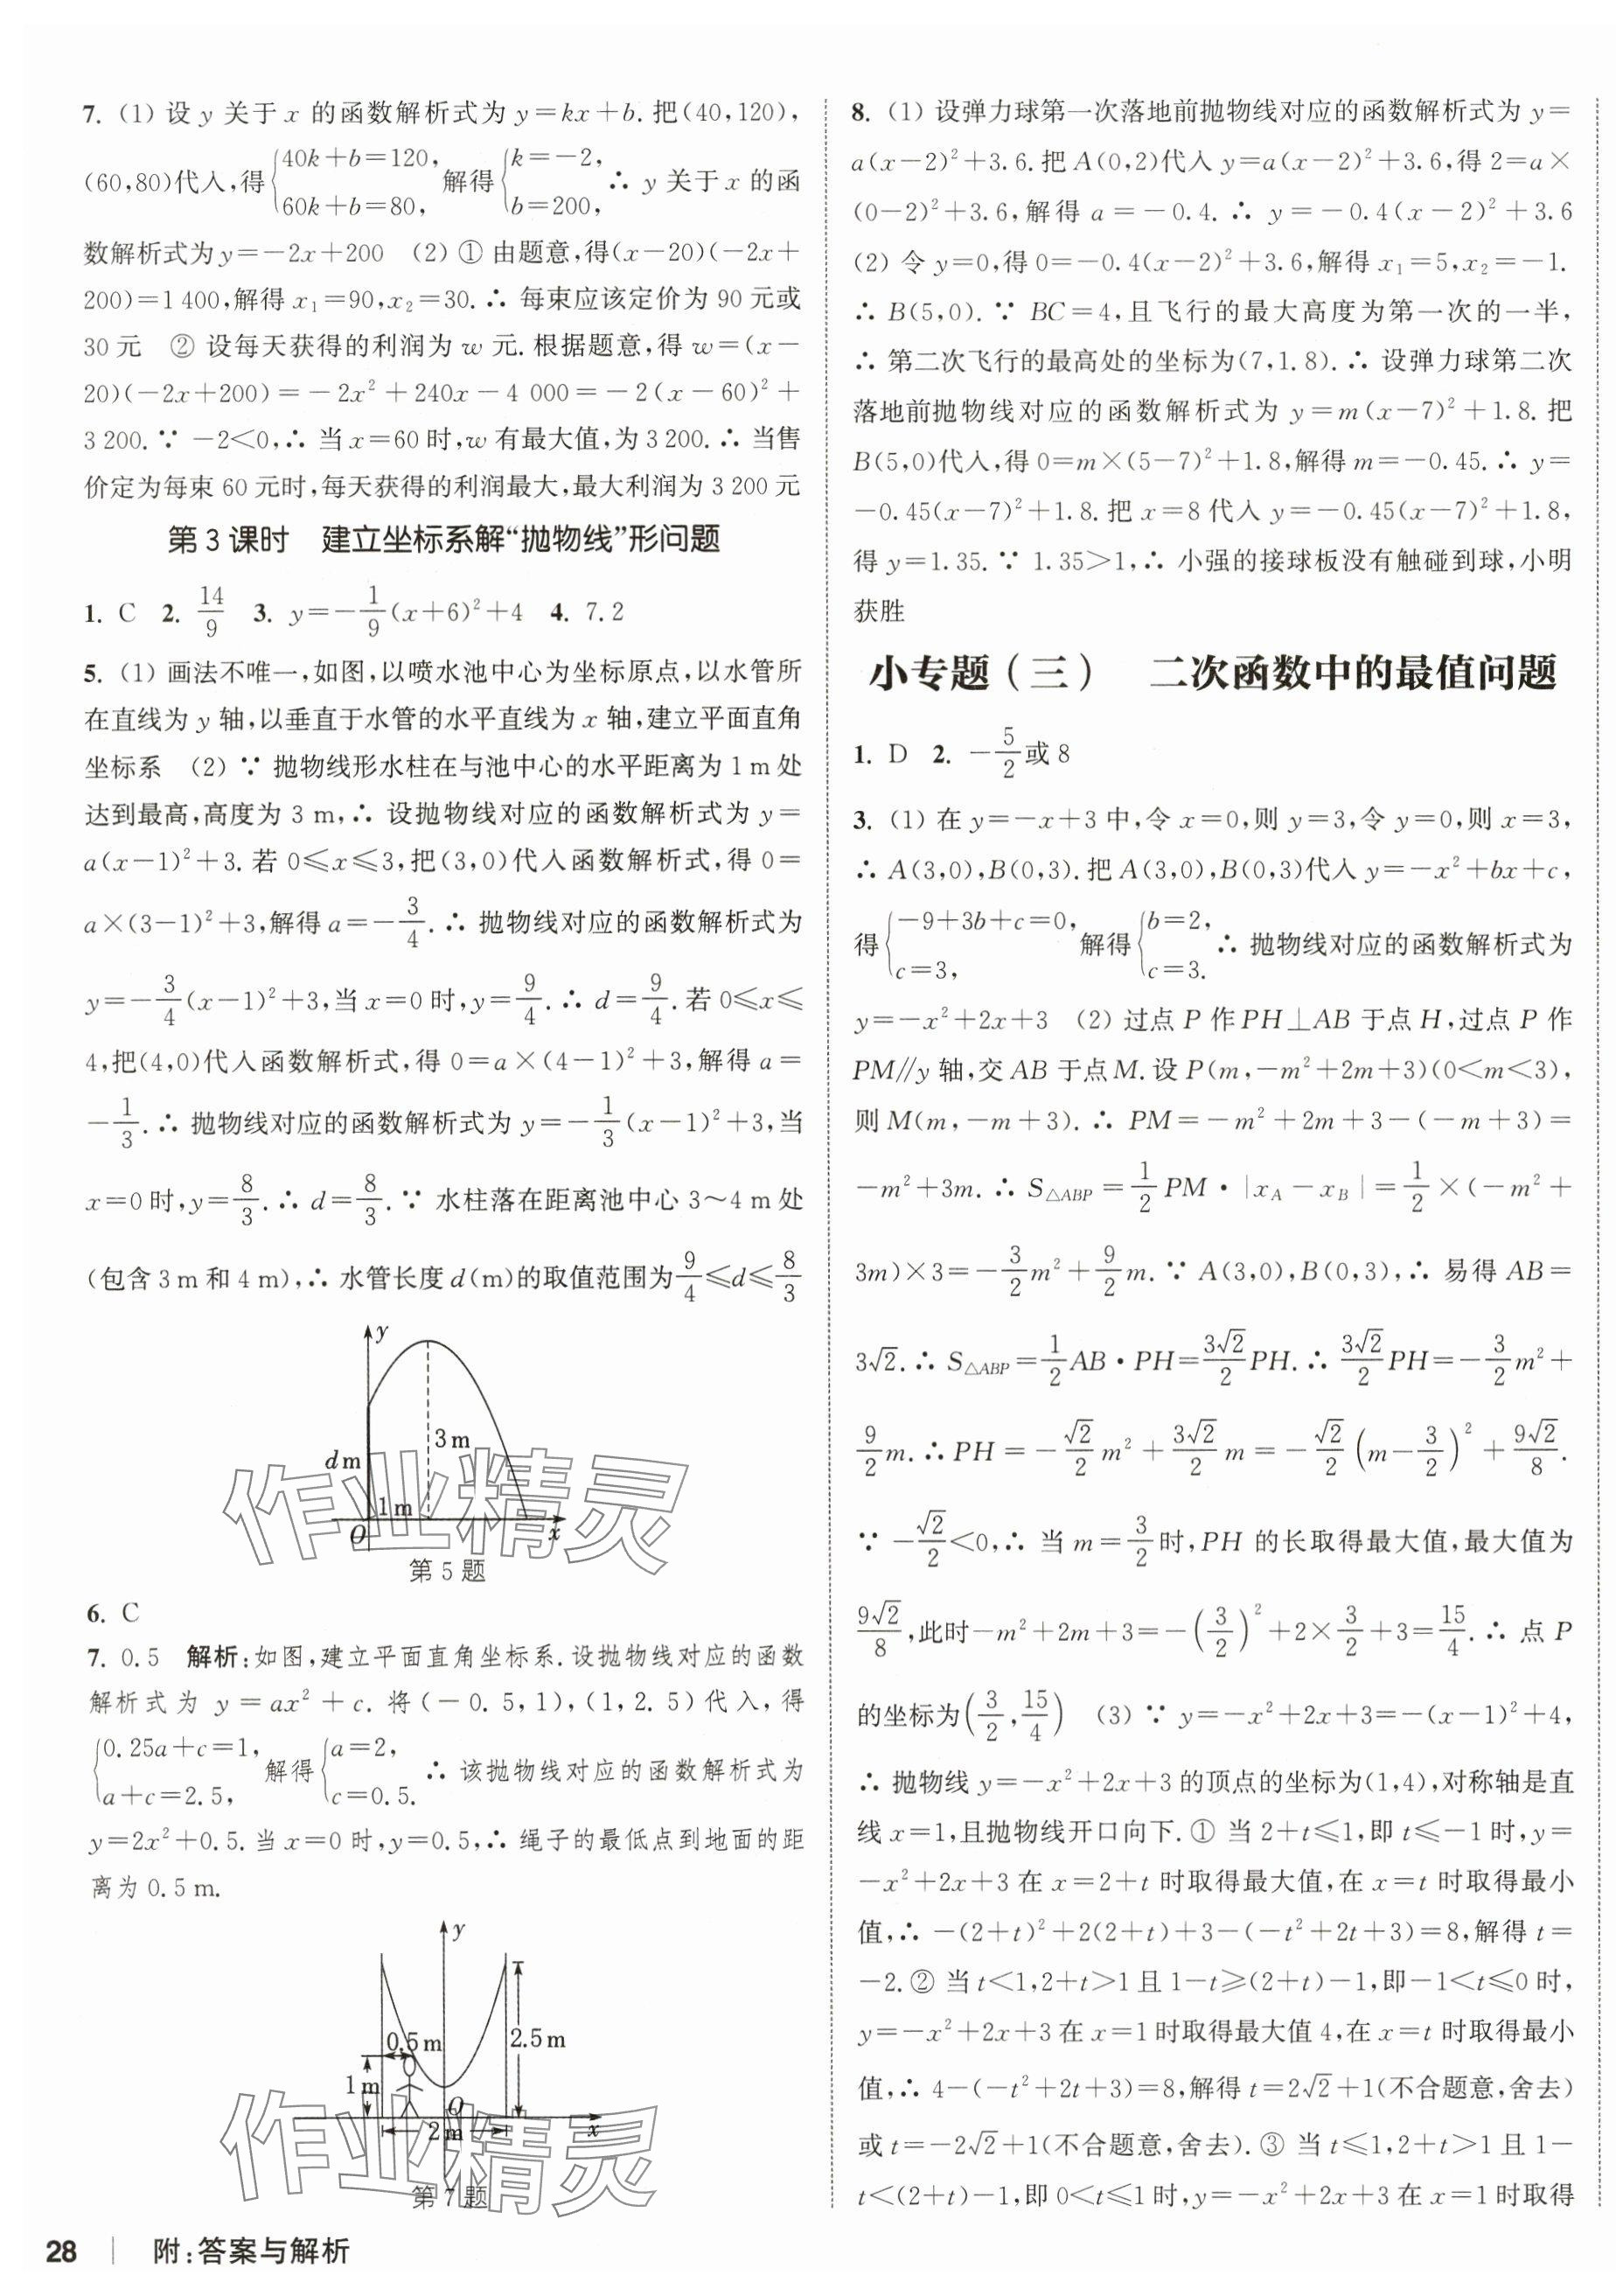 7. (1) 设 y 关于 x 的函数解析式为 y=kx+b. 把(40,120),
(60,80)代入,得{40k+b=120, 60k+b=80, 解得{k=-2, b=200, ∴ y 关于 x 的函
数解析式为 y=-2x+200 (2) ① 由题意,得(x-20)(-2x+
200)=1 400,解得 x₁=90,x₂=30. ∴ 每束应该定价为 90 元或
30 元 ② 设每天获得的利润为 w 元. 根据题意,得 w=(x-
20)(-2x+200)=-2x²+240x-4 000=-2(x-60)²+
3 200. ∵ -2<0,∴ 当 x=60 时,w 有最大值,为 3 200. ∴ 当售
价定为每束 60 元时,每天获得的利润最大,最大利润为 3 200 元
第 3 课时 建立坐标系解“抛物线”形问题
1. C 2. 14/9 3. y=-1/9(x+6)²+4 4. 7.2
5. (1) 画法不唯一,如图,以喷水池中心为坐标原点,以水管所
在直线为 y 轴,以垂直于水管的水平直线为 x 轴,建立平面直角
坐标系 (2) ∵ 抛物线形水柱在与池中心的水平距离为 1 m 处
达到最高,高度为 3 m,∴ 设抛物线对应的函数解析式为 y=
a(x-1)²+3. 若 0≤x≤3,把(3,0)代入函数解析式,得 0=
a×(3-1)²+3,解得 a=-3/4. ∴ 抛物线对应的函数解析式为
y=-3/4(x-1)²+3,当 x=0 时,y=9/4. ∴ d=9/4. 若 0≤x≤
4,把(4,0)代入函数解析式,得 0=a×(4-1)²+3,解得 a=
-1/3. ∴ 抛物线对应的函数解析式为 y=-1/3(x-1)²+3,当
x=0 时,y=8/3. ∴ d=8/3. ∵ 水柱落在距离池中心 3~4 m 处
(包含 3 m 和 4 m),∴ 水管长度 d(m)的取值范围为 9/4≤d≤8/3
y
3 m
d m
1 m
O x
第 5 题
作业精灵
6. C
7. 0.5 解析:如图,建立平面直角坐标系. 设抛物线对应的函数
解析式为 y=ax²+c. 将(-0.5,1),(1,2.5)代入,得
{0.25a+c=1, a+c=2.5, 解得{a=2, c=0.5. ∴ 该抛物线对应的函数解析式为
y=2x²+0.5. 当 x=0 时,y=0.5,∴ 绳子的最低点到地面的距
离为 0.5 m.
y
0.5 m 2.5 m
1 m
O
2 m x
第 7 题
作业精灵
28 附:答案与解析
8. (1) 设弹力球第一次落地前抛物线对应的函数解析式为 y=
a(x-2)²+3.6. 把 A(0,2)代入 y=a(x-2)²+3.6,得 2=a×
(0-2)²+3.6,解得 a=-0.4. ∴ y=-0.4(x-2)²+3.6
(2) 令 y=0,得 0=-0.4(x-2)²+3.6,解得 x₁=5,x₂=-1.
∴ B(5,0). ∵ BC=4,且飞行的最大高度为第一次的一半,
∴ 第二次飞行的最高处的坐标为(7,1.8). ∴ 设弹力球第二次
落地前抛物线对应的函数解析式为 y=m(x-7)²+1.8. 把
B(5,0)代入,得 0=m×(5-7)²+1.8,解得 m=-0.45. ∴ y=
-0.45(x-7)²+1.8. 把 x=8 代入 y=-0.45(x-7)²+1.8,
得 y=1.35. ∵ 1.35>1,∴ 小强的接球板没有触碰到球,小明
获胜
小专题(三) 二次函数中的最值问题
1. D 2. -5/2或 8
3. (1) 在 y=-x+3 中,令 x=0,则 y=3,令 y=0,则 x=3,
∴ A(3,0),B(0,3). 把 A(3,0),B(0,3)代入 y=-x²+bx+c,
得{-9+3b+c=0, c=3, 解得{b=2, c=3. ∴ 抛物线对应的函数解析式为
y=-x²+2x+3 (2) 过点 P 作 PH⊥AB 于点 H,过点 P 作
PM∥y 轴,交 AB 于点 M. 设 P(m,-m²+2m+3)(0<m<3),
则 M(m,-m+3). ∴ PM=-m²+2m+3-(-m+3)=
-m²+3m. ∴ S△ABP=1/2PM·|xA-xB|=1/2×(-m²+
3m)×3=-3/2m²+9/2m. ∵ A(3,0),B(0,3),∴ 易得 AB=
3√2. ∴ S△ABP=1/2AB·PH=3√2/2PH. ∴ 3√2/2PH=-3/2m²+
9/2m. ∴ PH=-√2/2m²+3√2/2m=-√2/2(m-3/2)²+9√2/8.
∵ -√2/2<0,∴ 当 m=3/2时,PH 的长取得最大值,最大值为
9√2/8,此时-m²+2m+3=-(3/2)²+2×3/2+3=15/4. ∴ 点 P
的坐标为(3/2,15/4) (3) ∵ y=-x²+2x+3=-(x-1)²+4,
∴ 抛物线 y=-x²+2x+3 的顶点的坐标为(1,4),对称轴是直
线 x=1,且抛物线开口向下. ① 当 2+t≤1,即 t≤-1 时,y=
-x²+2x+3 在 x=2+t 时取得最大值,在 x=t 时取得最小
值,∴ -(2+t)²+2(2+t)+3-(-t²+2t+3)=8,解得 t=
-2. ② 当 t<1,2+t>1 且 1-t≥(2+t)-1,即-1<t≤0 时,
y=-x²+2x+3 在 x=1 时取得最大值 4,在 x=t 时取得最小
值,∴ 4-(-t²+2t+3)=8,解得 t=2√2+1(不合题意,舍去)
或 t=-2√2+1(不合题意,舍去). ③ 当 t≤1,2+t>1 且 1-
t<(2+t)-1,即 0<t≤1 时,y=-x²+2x+3 在 x=1 时取得